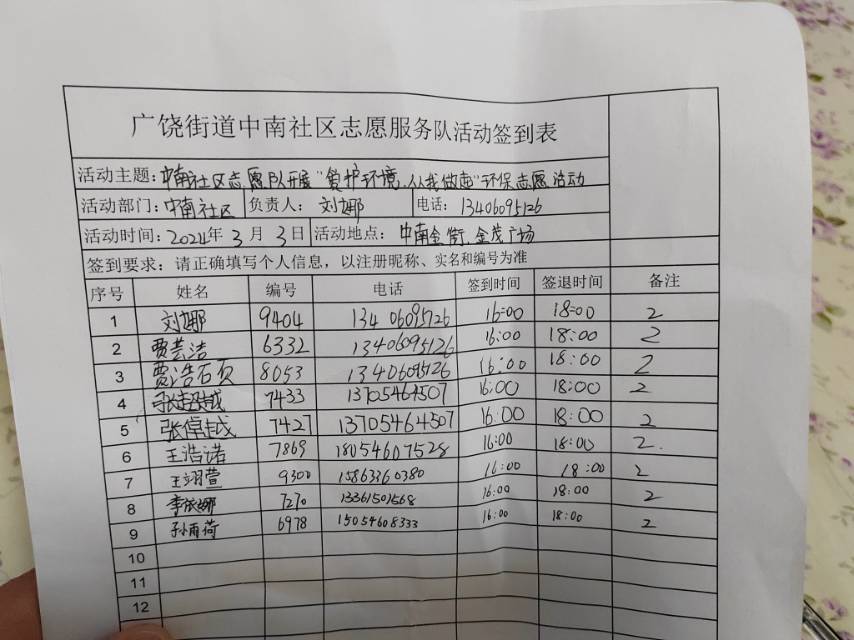 广饶街道中南社区志愿服务队活动签到表
活动主题：中南社区志愿队开展"爱护环境，从我做起"环保志愿活动
活动部门：中南社区 负责人：刘娜 电话：13406095126
活动时间：2024年3月3日 活动地点：中南金街、金茂广场
签到要求：请正确填写个人信息，以注册昵称、实名和编号为准
序号 姓名 编号 电话 签到时间 签退时间 备注
1 刘娜 9404 13406095126 16:00 18:00 2
2 贾芸洁 6332 13406095126 16:00 18:00 2
3 贾浩石页 8053 13406095126 16:00 18:00 2
4 7433 13705464507 16:00 18:00 2
5 7427 13705464507 16:00 18:00 2
6 王浩诺 7869 18054607528 16:00 18:00 2
7 王翊萱 9300 15863360380 16:00 18:00 2
8 7270 13361501568 16:00 18:00 2
9 孙雨荷 6978 15054608333 16:00 18:00 2
10
11
12